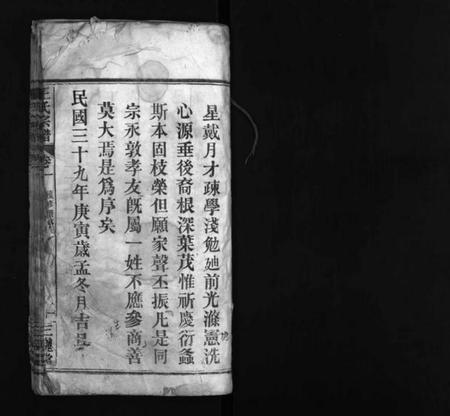 星戴月才疎學淺勉廸前光滌慮洗
心源垂後裔根深葉茂惟祈慶衍螽
斯本固枝榮但願家聲丕振凡是同
宗永敦孝友旣屬一姓不應參商善
莫大焉是爲序矣
民國三十九年庚寅歲孟冬月吉旦
王氏宗譜
卷一
三槐堂